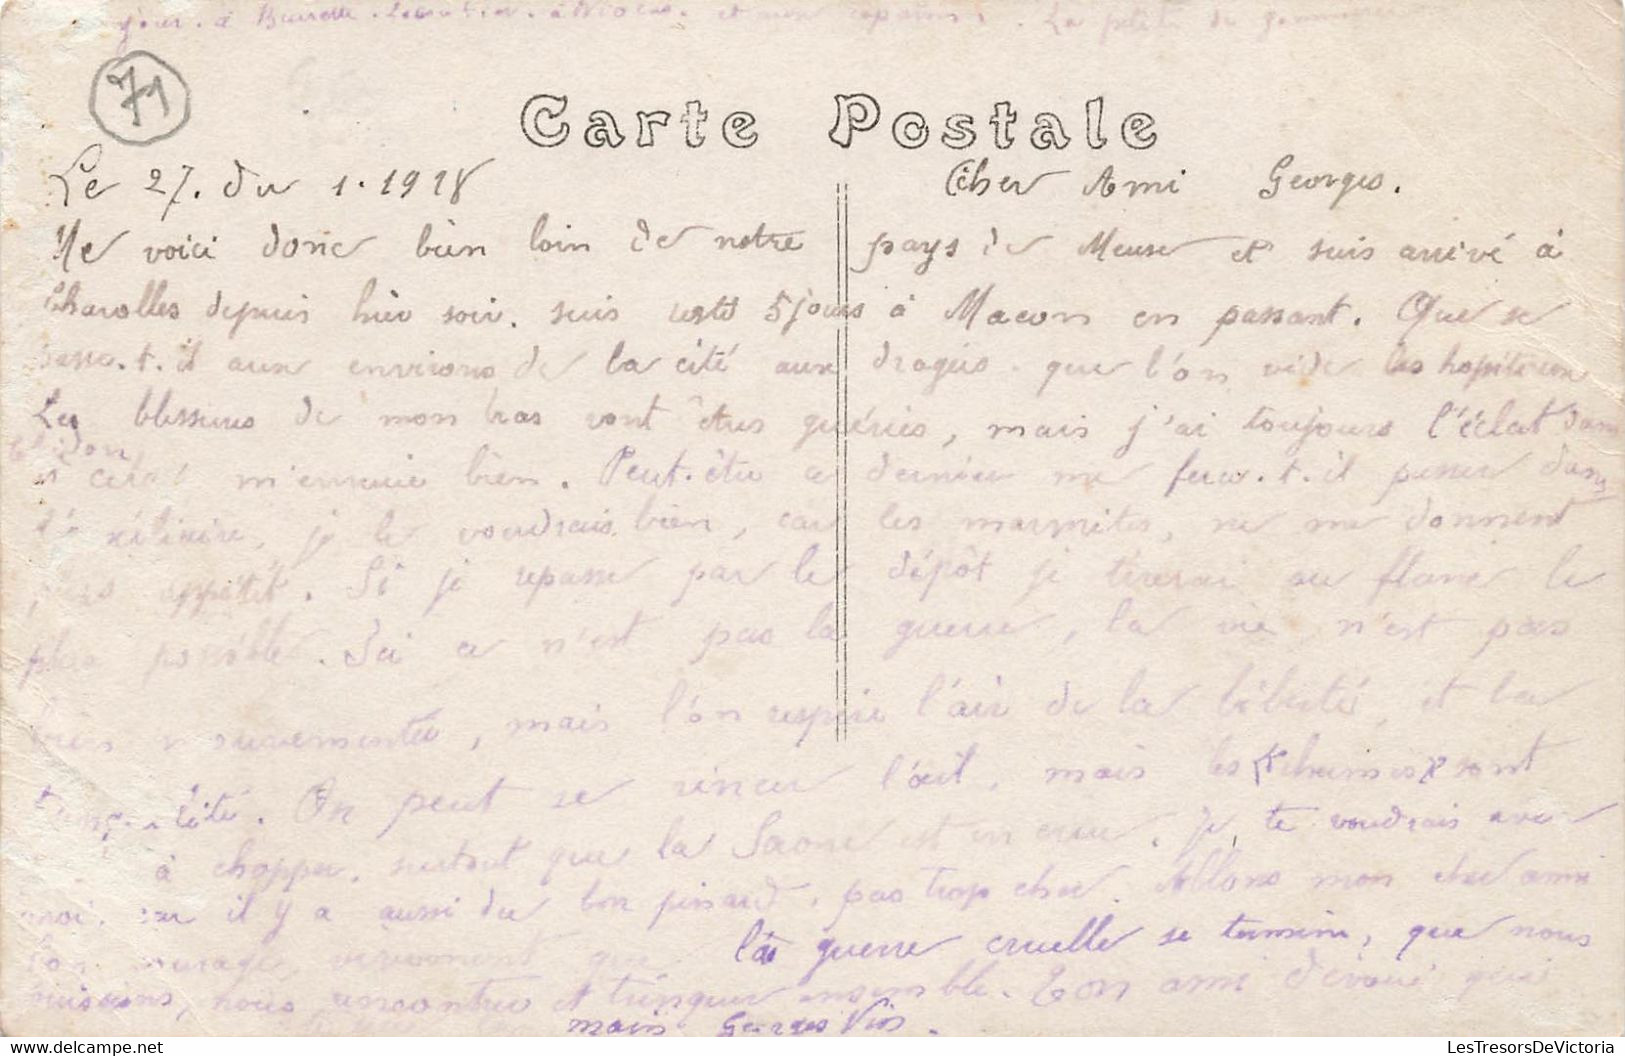 jour. à et aux copains. La petite de
71
Carte Postale
Le 27. du 1. 1918 Cher Ami Georges.
Me voici donc bien loin de notre pays de Meuse et suis arrivé à
Charolles depuis hier soir. suis resté 5 jours à Macon en passant. Que se
passe.t.il aux environs de la cité aux dragés. que l'on vide les hopiteux
Les blessures de mon bras vont êtres guéries, mais j'ai toujours l'éclat dans
et cela m'ennuie bien. Peut.être ce dernier me fera.t.il passer dans
, je le voudrais bien, car les marmites, ne me donnent
plus appétit. Si je repasse par le dépôt je tirerai au flanc le
plus possible. Ici ce n'est pas la guerre, la vie n'est pas
bien mouvementée, mais l'on respire l'air de la liberté, et la
tranquilité. On peut se rincer l'œil, mais les sont
à chopper, surtout que la Saone est en crue. Je te voudrais avec
moi, car il y a aussi du bon pinard, pas trop cher. Allons mon cher ami
bon courage, que la guerre cruelle se termine, que nous
puissions, nous rencontrer et trinquer ensemble. Ton ami dévoué qui
main Georges
LesTresorsDeVictoria.com